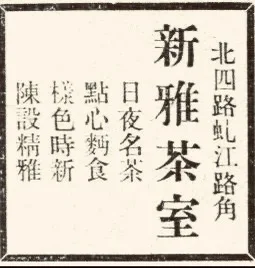 北四路虬江路角
新雅茶室
日夜名茶
點心麵食
樣色時新
陳設精雅